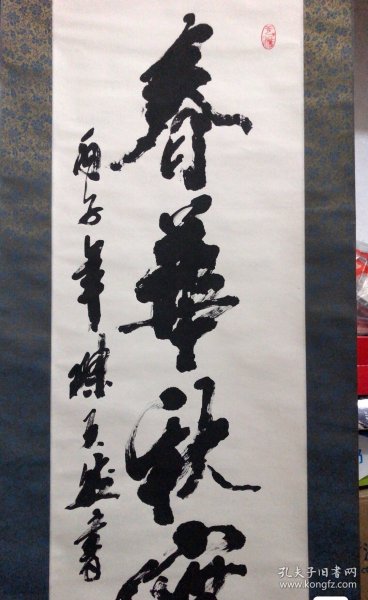 春華秋
丙子年陳天然書
孔夫子旧书网
www.kongfz.com